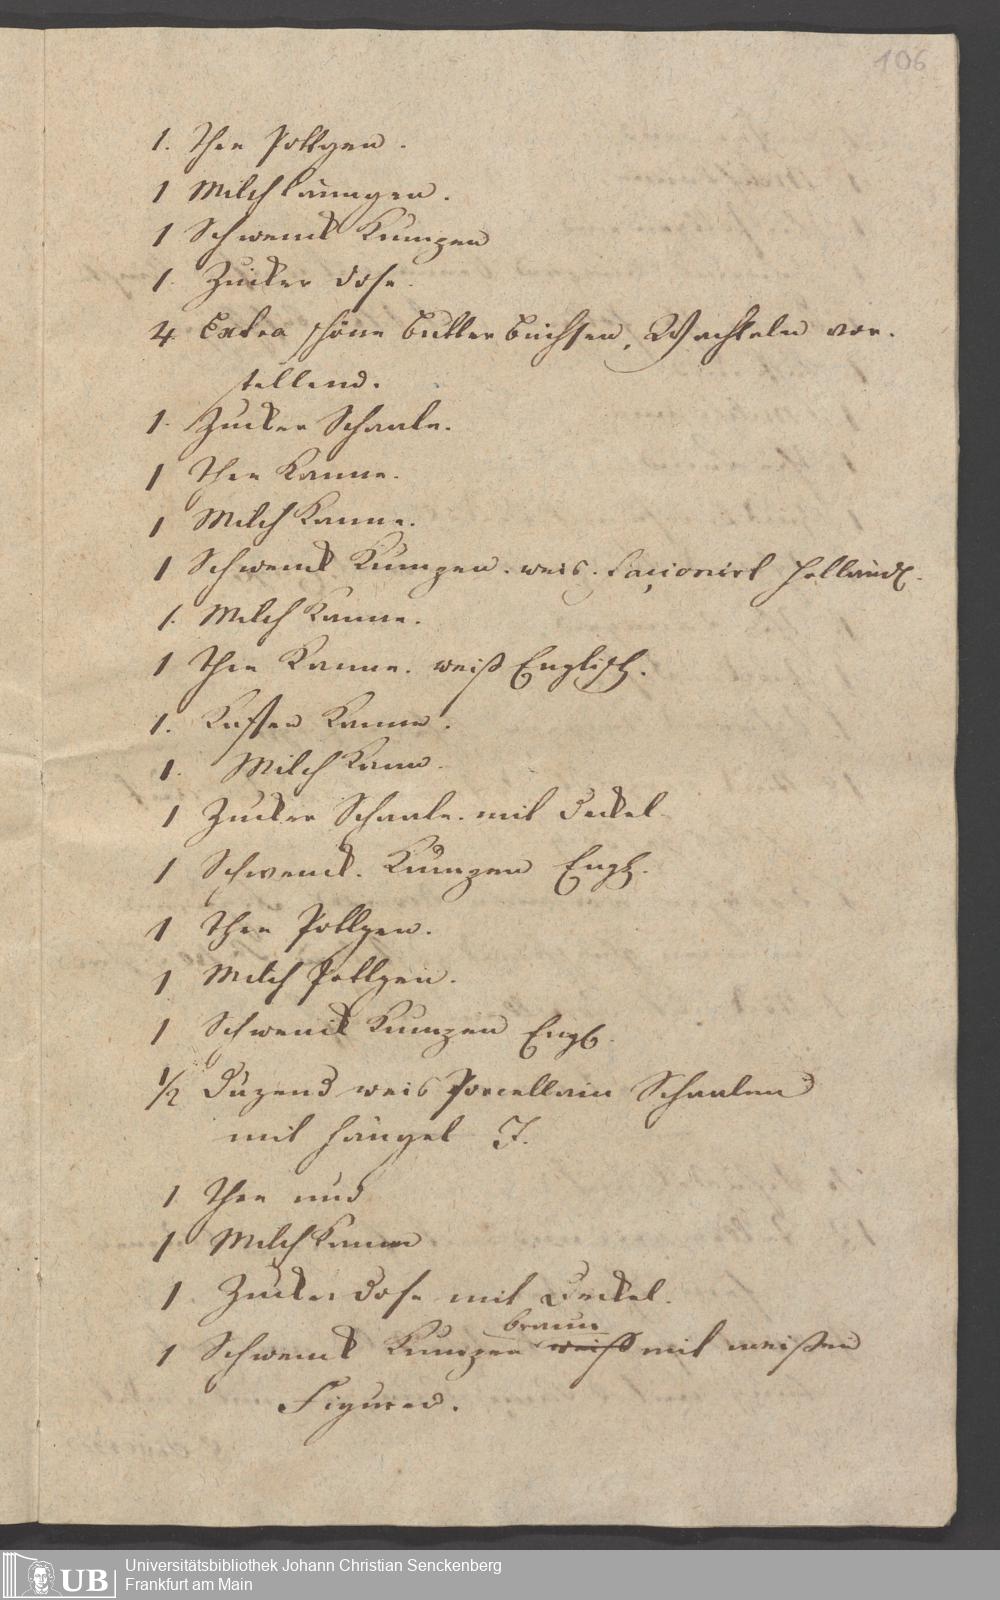 106
1. Thee Pottgen.
1 Milch Känngen.
1 Schwenck Kumpen
1. Zucker dose.
4 Extra schöne Butter Büchsen, Wachteln vor-
stellend.
1. Zucker Schaale.
1 Thee Kanne.
1 Milch Kanne.
1 Schwenck Kumpen. weis. façionirt Holländ.
1. Milch Kanne.
1 Thee Kanne. weiß Englisch.
1. Kaffee Kanne.
1. Milch Kann.
1 Zucker Schaale. mit Deckel.
1 Schwenck. Kumpen Engl.
1 Thee Pottgen.
1 Milch Pottgen.
1 Schwenck Kumpen Engl.
1/2 Duzend weis Porcellain Schaalen
mit Hängel J.
1 Thee und
1 Milch Kann
1 Zucker Dose mit Deckel.
braun
1 Schwenck Kumpen weiß mit weißen
Figuren.
UB Universitätsbibliothek Johann Christian Senckenberg
Frankfurt am Main